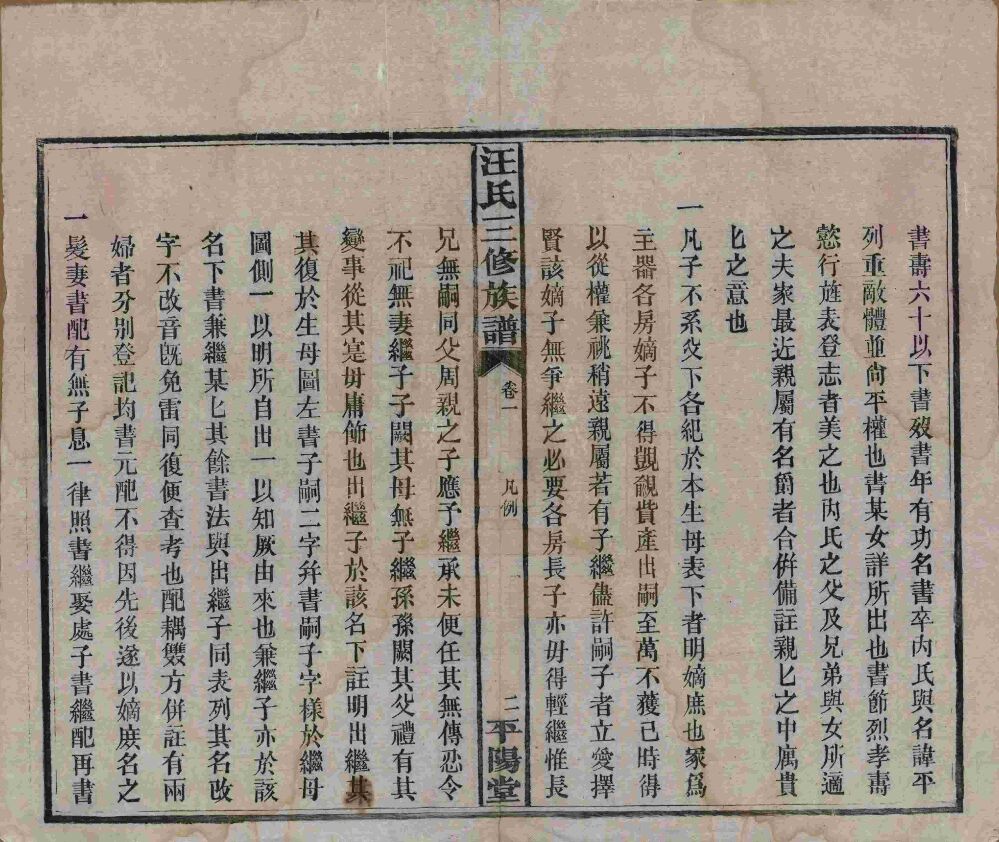 書壽六十以下書歿書年有功名書卒內氏與名諱平
列重敵體並尙平權也書某女詳所出也書節烈孝壽
懿行旌表登志者美之也內氏之父及兄弟與女所適
之夫家最近親屬有名爵者合倂備註親匕之中寓貴
匕之意也
一凡子不系父下各紀於本生母表下者明嫡庶也冢爲
主器各房嫡子不得覬覦貲產出嗣至萬不獲已時得
以從權兼祧稍遠親屬若有子繼儘許嗣子者立愛擇
賢該嫡子無爭繼之必要各房長子亦毋得輕繼惟長
汪氏三修族譜
卷一
凡例
二
平陽堂
兄無嗣同父周親之子應予繼承未便任其無傳忍令
不祀無妻繼子子闕其母無子繼孫孫闕其父禮有其
變事從其寔毋庸飾也出繼子於該名下註明出繼某
其復於生母圖左書子嗣二字幷書嗣子字樣於繼母
圖側一以明所自出一以知厥由來也兼繼子亦於該
名下書兼繼某匕其餘書法與出繼子同表列其名改
字不改音旣免雷同復便查考也配耦雙方併註有兩
婦者分別登記均書元配不得因先後遂以嫡庶名之
一髮妻書配有無子息一律照書繼娶處子書繼配再書